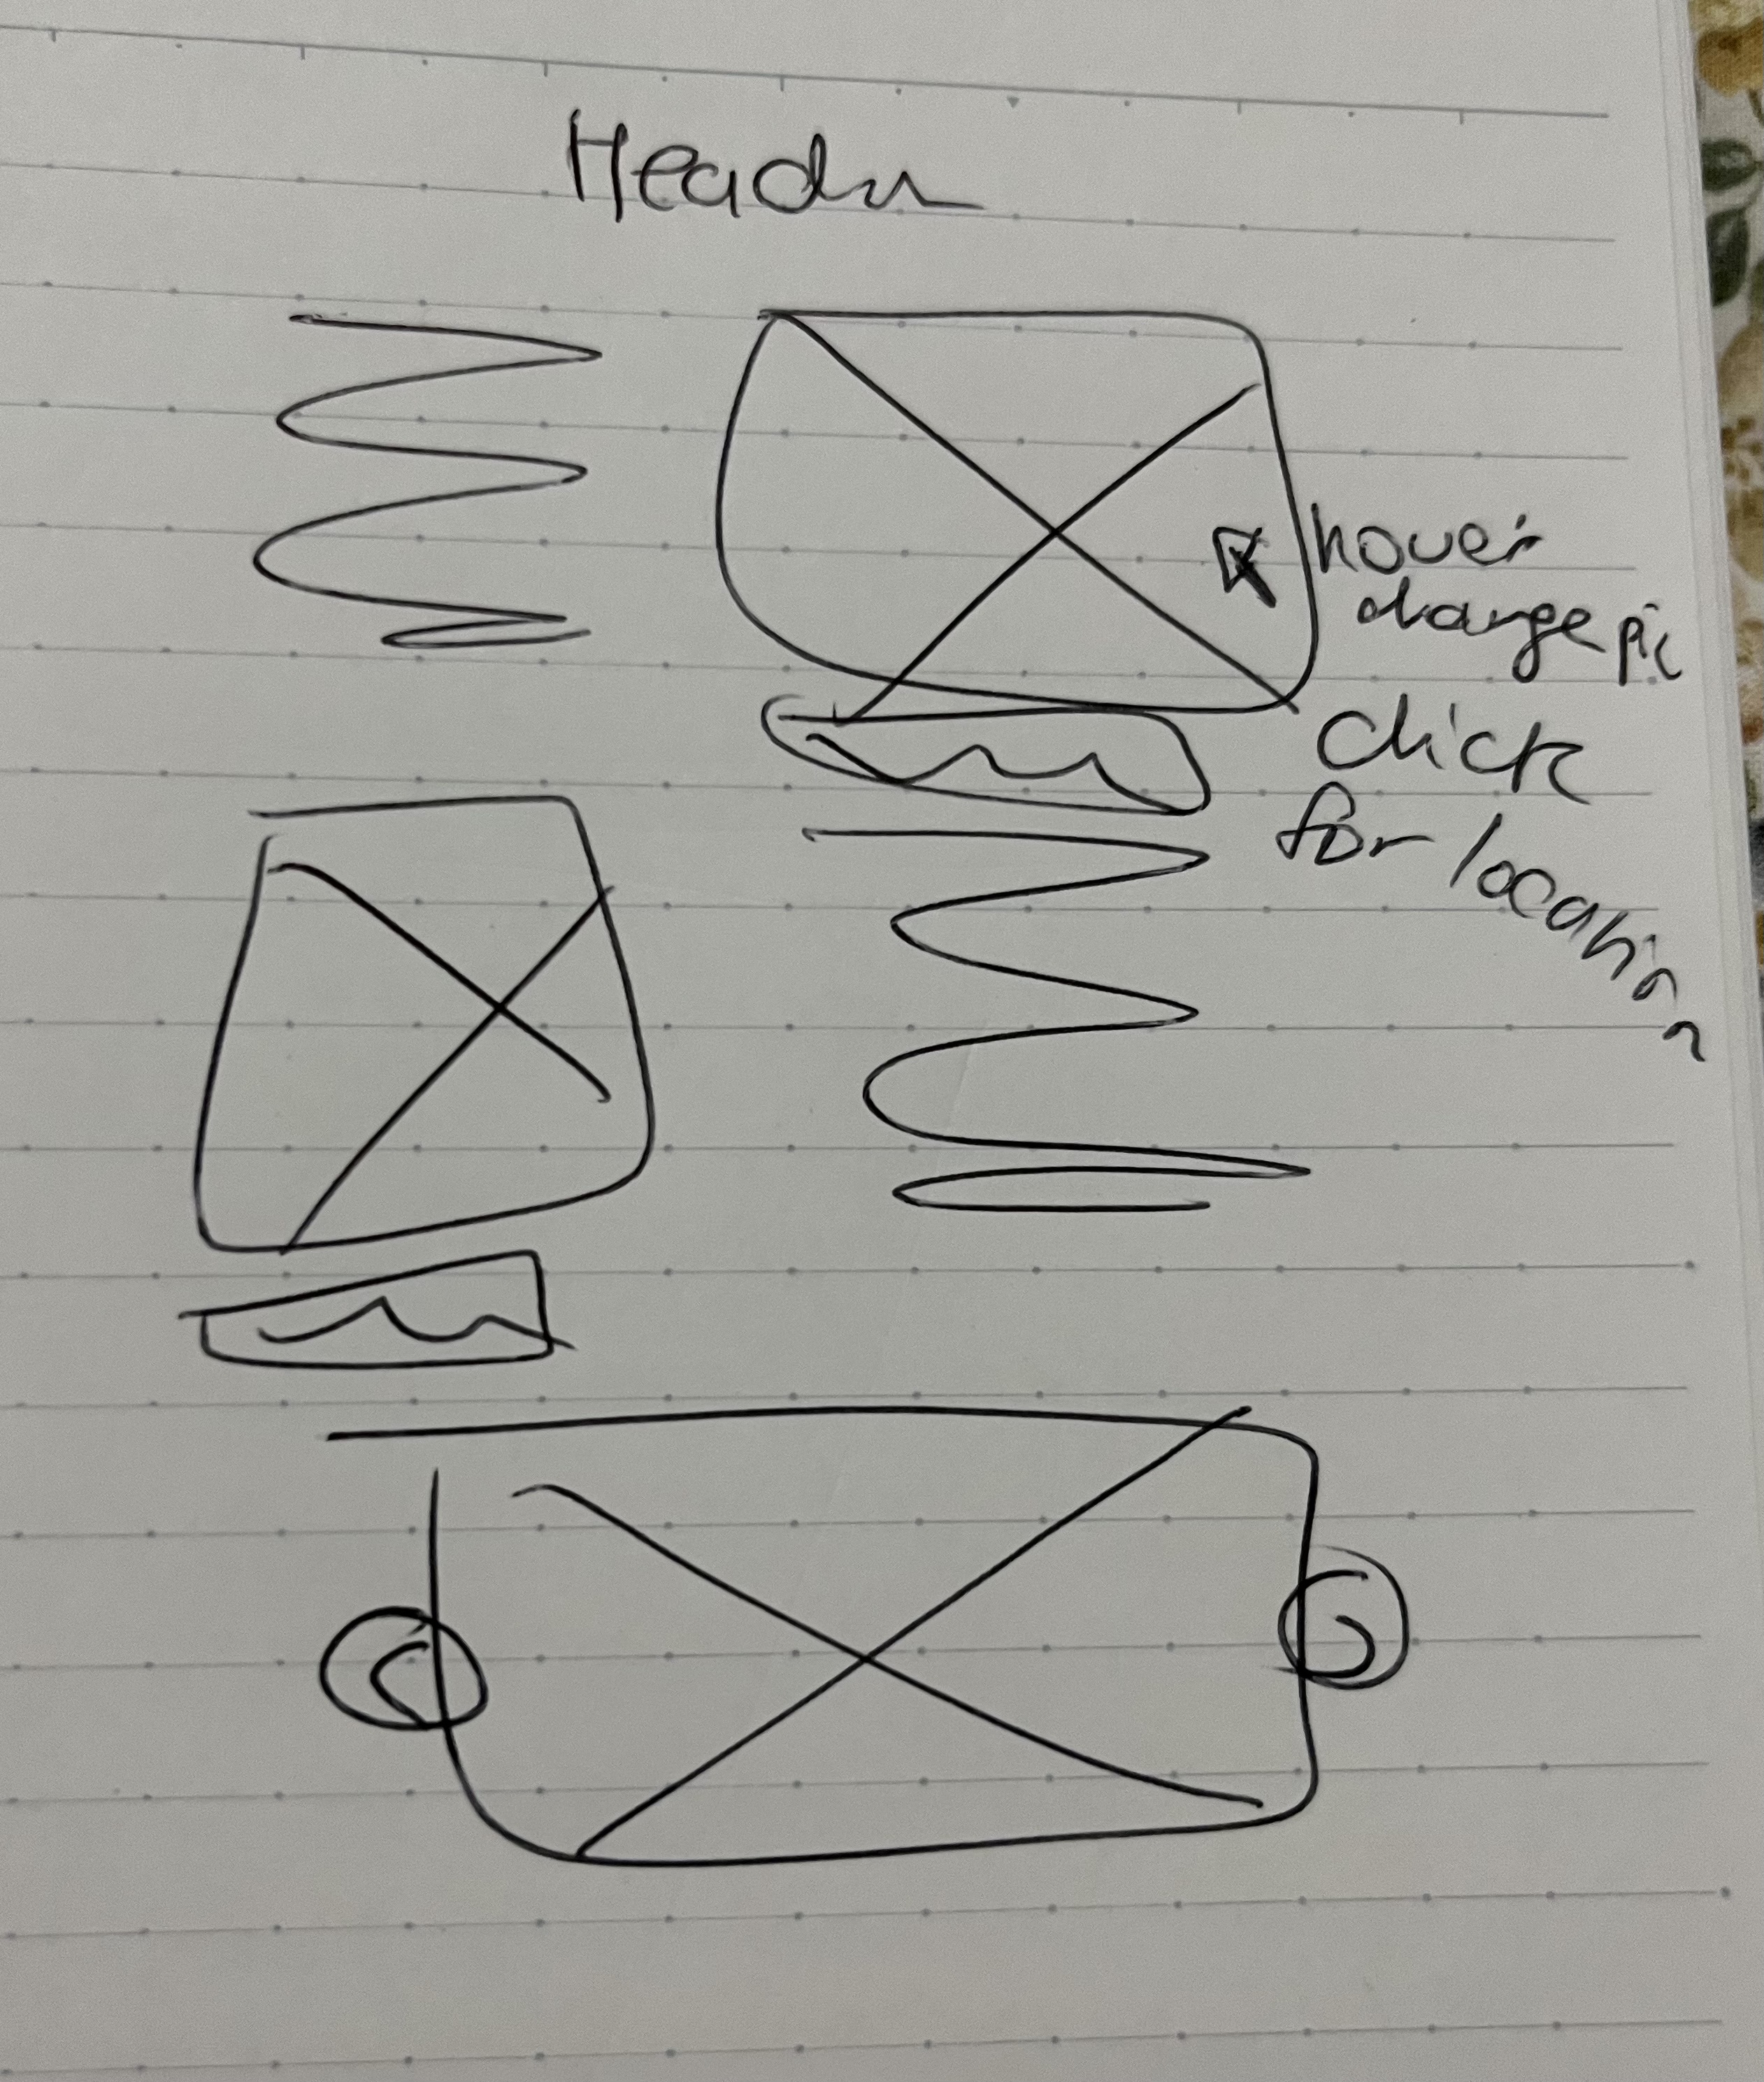 Header
hover
change pic
click
for location